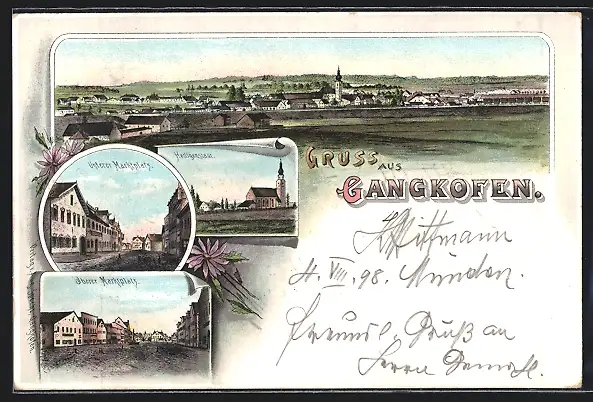 Unterer Marktplatz.
Heiligenstadt.
GRUSS AUS
GANGKOFEN.
Oberer Marktplatz.
Wittmann
4. VIII. 98.
Freundl. Gruß an
Herrn